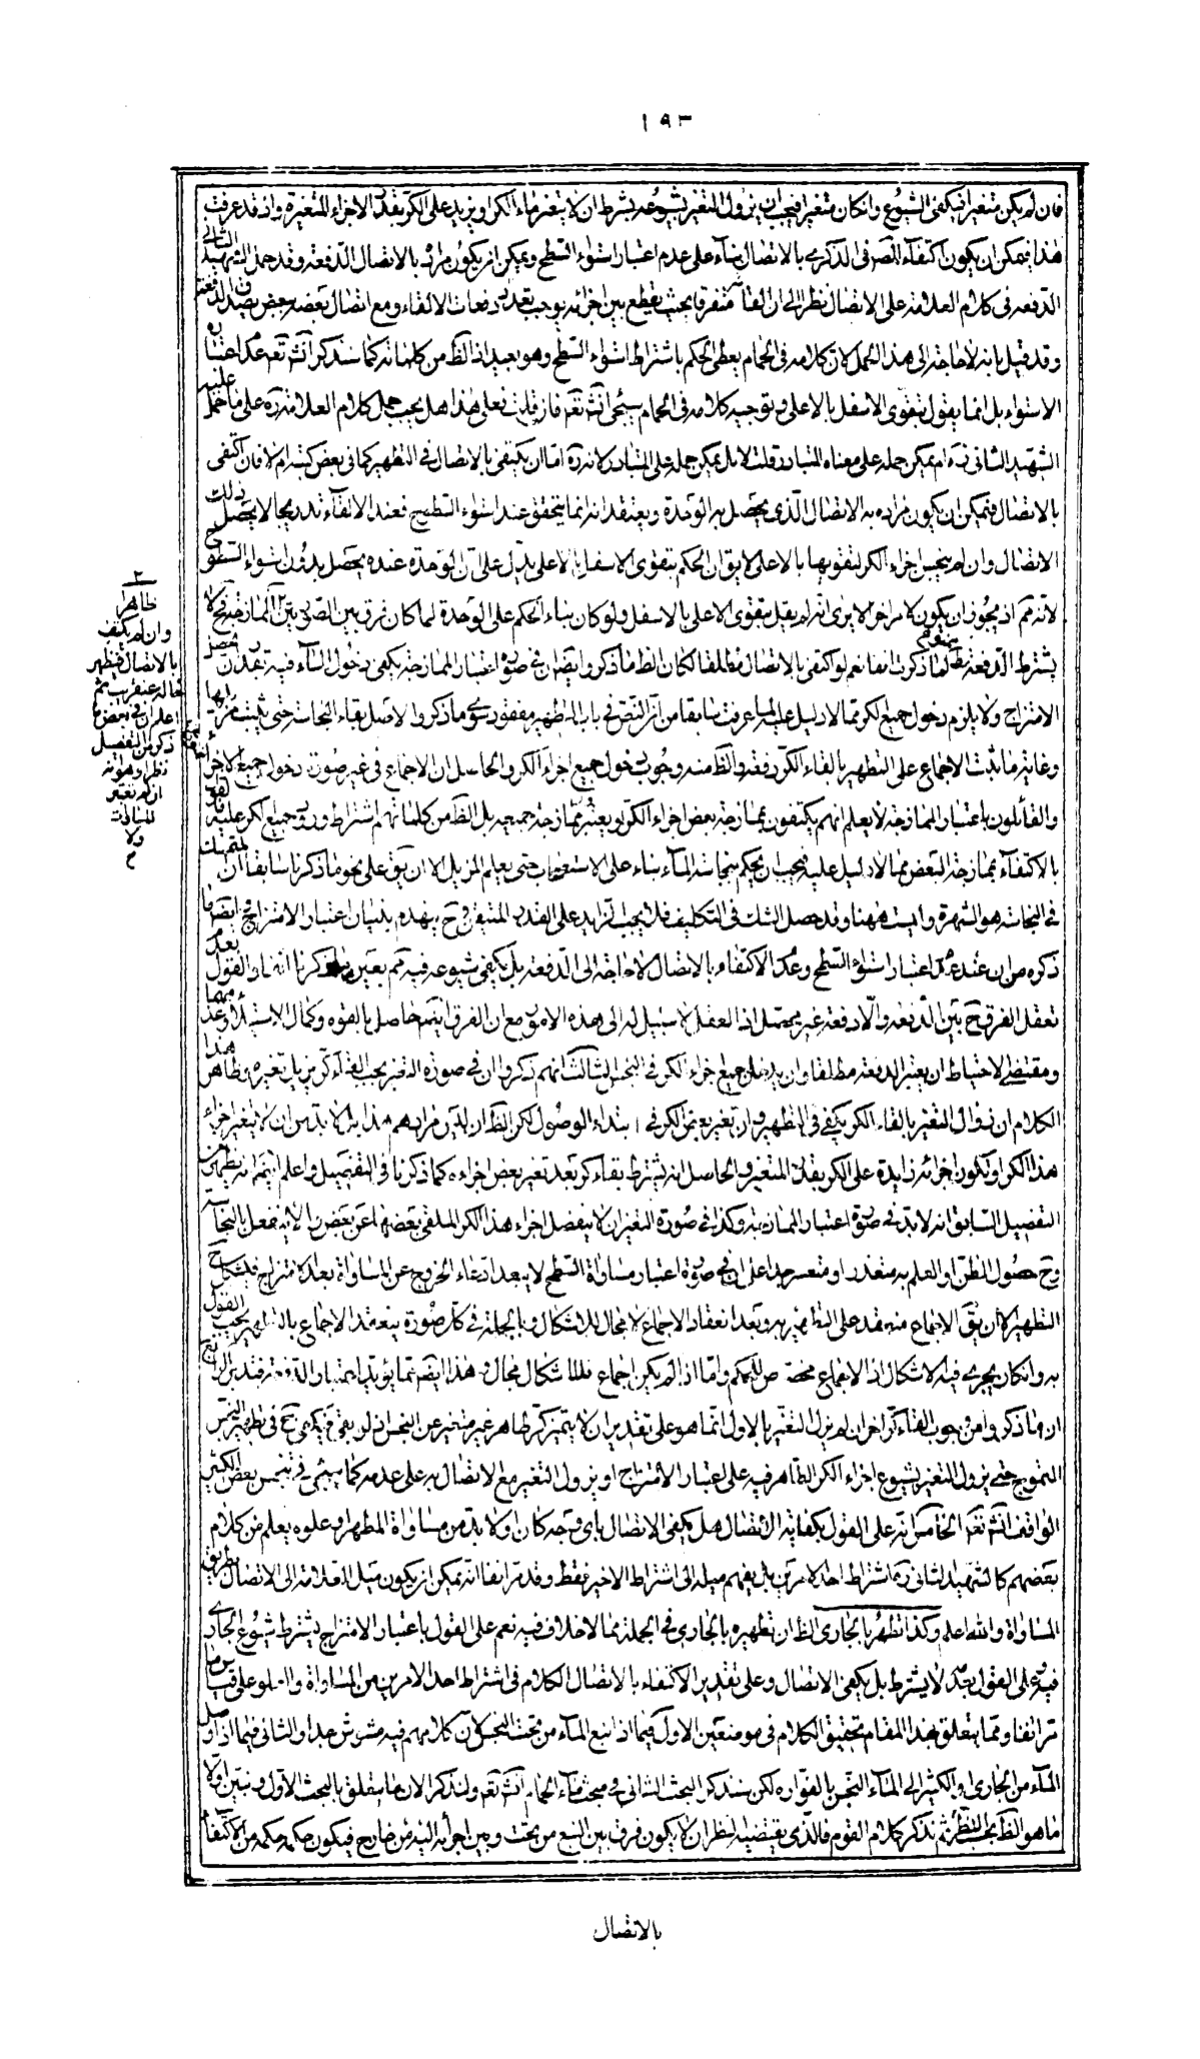 ١٩٣
فان لم يكن متغيرا فيكفى الشيوع وان كان متغيرا فيجب ان يزول التغير بشيوعه بشرط ان لا يتغير ماء الكر او يزيد على الكر بقدر الاجزاء المتغيرة واذ قد عرفت
هذا فيمكن ان يكون اكتفاء المص فى الذكرى بالاتصال بناء على عدم اعتبار استواء السطح ويمكن ان يكون مراده بالاتصال الدفعة وقد حمل الشهيد الثانى
الدفعة فى كلام العلامة على الاتصال نظرا الى ان القاء متفرقا بحيث يقطع بين اجزائه يوجب تعدد دفعات الالقاء ومع اتصال بعضه ببعض يصدق الدفعة
وقد قيل بانه لا حاجة الى هذا الحمل لان كلامه فى الحمام يعطى الحكم باشتراط استواء السطح وهو بعيد اذ الظ من كلماته كما سنذكر انش تعم عدم اعتبار
الاستواء بل انما يقول بتقوى الاسفل بالاعلى وتوجيه كلامه فى الحمام سيجئ انش تعم فان قلت فعلى هذا هل يجب حمل كلام العلامة ره على ما حمل عليه
الشهيد الثانى ره ام يمكن حمله على معناه المتبادر قلت لا بل يمكن حمله على المتبادر لانه ره اما ان يكتفى بالاتصال فى التطهير كما فى بعض كتبه ام لا فان اكتفى
بالاتصال فيمكن ان يكون مراده به الاتصال الذى يحصل به الوحدة ويعتقد انه انما يتحقق عند استواء السطح فعند الالقاء تدريجا لا يحصل ذلك
الاتصال وان لم ينجس اجزاء الكر لتقويها بالاعلى لا يق ان الحكم بتقوى الاسفل بالاعلى يدل على ان الوحدة عنده يحصل بدون استواء السطوح
لانه مم اذ يجوز ان يكون لامر اخر الا يرى انه لم يقل بتقوى الاعلى بالاسفل ولو كان بناء الحكم على الوحدة لما كان فرق بين الصورتين
يشترط الدفعة لما ذكرت انفا نعم لو اكتفى بالاتصال مطلقا لكان الظ ما ذكر وايضا فى صورة اعتبار الممازجة يكفى دخول الماء فيه بقدر
الامتزاج ولا يلزم دخول جميع الكر مما لا دليل عليه لما عرفت سابقا من ان النص فى باب التطهير مفقود سوى ما ذكر والاصل بقاء النجاسة حتى يثبت
وغاية ما ثبت الاجماع على التطهير بالقاء الكر دفعة والظ منه وجوب دخول جميع اجزاء الكر والحاصل ان الاجماع فى غير صورة دخول جميع الاجزاء
والقائلون باعتبار الممازجة لا يعلم انهم يكتفون بممازجة بعض اجزاء الكر او يعتبر ممازجة جميعه بل الظ من كلماتهم اشتراط ورود جميع الكر عليه
بالاكتفاء بممازجة البعض مما لا دليل عليه فيجب ان يحكم بنجاسة الماء بناء على الاستصحاب حتى يعلم المزيل الا ان يق على نحو ما ذكرنا سابقا ان
فى النجاسة هو الشهرة وليست ههنا وقد حصل الشك فى التكليف فلا يجب الزايد على القدر المتيقن وح ينهدم بنيان اعتبار الامتزاج وايضا ما
ذكره من ان عند عدم اعتبار استواء السطح وعدم الاكتفاء بالاتصال لا حاجة الى الدفعة بل يكفى شيوعه فيه مم بعين ما ذكرنا انفا والقول بعدم
تعقل الفرق ح بين الدفعة واللادفعة غير محتمل اذ العقل لا سبيل له الى هذه الامور مع ان الفرق ايضا حاصل بالقوة وكمال الاستيلاء وعدمهما
ومقتضى الاحتياط ان يعتبر الدفعة مطلقا وان يدخل جميع اجزاء الكر فى النجس الثالث انهم ذكروا ان فى صورة التغير يجب القاء كر يزيل تغيره وظاهر هذا
الكلام ان زوال التغير بالقاء الكر يكفى فى التطهير وان تغير بعض الكر فى ابتداء الوصول لكن الظ ان ليس مرادهم هذا بل لا بد من ان لا يتغير اجزاء
هذا الكر او يكون اجزائه زايدة على الكر بقدر المتغير والحاصل انه يشترط بقاء كر بعد تغير بعض اجزاءه كما ذكرنا فى التفصيل واعلم ايضا انه يظهر من
التفصيل السابق انه لا بد فى صورة اعتبار الممازجة وكذا فى صورة التغير ان لا ينفصل اجزاء هذا الكر الملقى بعضها عن بعض لئلا ينفعل بالنجاسة
وح حصول الظن او العلم به متعذر او متعسر جدا على ان فى صورة اعتبار مساواة السطح لا يبعد ادعاء الخروج عن المساواة بعد الامتزاج فيشكل ح
التطهير الا ان يق الاجماع منعقد على التطهير به وبعد انعقاد الاجماع لا مجال للاشكال وبالجملة فى كل صورة ينعقد الاجماع بالتطهير يجب القول
به وان كان يجرى فيه الاشكال اذ الاجماع مخصص للحكم واما اذا لم يكن اجماع فللاشكال مجال وهذا ايضا مما يؤيد اعتبار الدفعة فتدبر الرابع
ان ما ذكروا من وجوب القاء كر اخر ان لم يزل التغير بالاول انما هو على تقدير ان لا يتميز كر طاهر غير متغير عن النجس اذ لو بقى فيكفى ح فى تطهير النجس
التمويج حتى يزول التغير بشيوع اجزاء الكر الطاهر فيه على اعتبار الامتزاج او يزول التغير مع الاتصال به على عدمه كما سيجئ فى تنجس بعض الكثير
الواقف انش تعم الخامس انه على القول بكفاية الاتصال هل يكفى الاتصال باى وجه كان او لا بد من مساواة المطهر او علوه يعلم من كلام
بعضهم كالشهيد الثانى ره اشتراط احد الامرين بل يفهم ميله الى اشتراط الاخير فقط وقد مر انفا انه يمكن ان يكون ميل العلامة الى الاتصال بطريق
المساواة والله اعلم وكذا تطهر بالجارى الظ ان تطهيره بالجارى فى الجملة مما لا خلاف فيه نعم على القول باعتبار الامتزاج يشترط شيوع الجارى
فيه وعلى القول بعدمه لا يشترط بل يكفى الاتصال وعلى تقدير الاكتفاء بالاتصال الكلام فى اشتراط احد الامرين من المساواة والعلو على قياس ما
مر انفا ومما يتعلق بهذا المقام تحقيق الكلام فى موضعين الاول فيما اذا نبع الماء من تحت النجس لان كلامهم فيه مشوش جدا والثانى فيما اذا وصل
الماء من الجارى او الكثير الى الماء النجس بالفوارة لكن سنذكر البحث الثانى فى مبحث ماء الحمام انش تعم ولنذكر الان ما يتعلق بالبحث الاول ونبين اولا
ما هو الظ بحسب النظر ثم نذكر كلام القوم فالذى يقتضيه النظر ان لا يكون فرق بين النبع من تحت وبين اجرائه اليه من خارج فيكون حكمه حكمه من الاكتفاء
ظاهرا
وان لم يكتف
بالاتصال فيظهر
حاله عن قريب ثم
اعلم ان فى بعض ما
ذكر من التفصيل
نظرا وهو انه
ان لم نعتبر
المساواة
ولا
بالاتصال